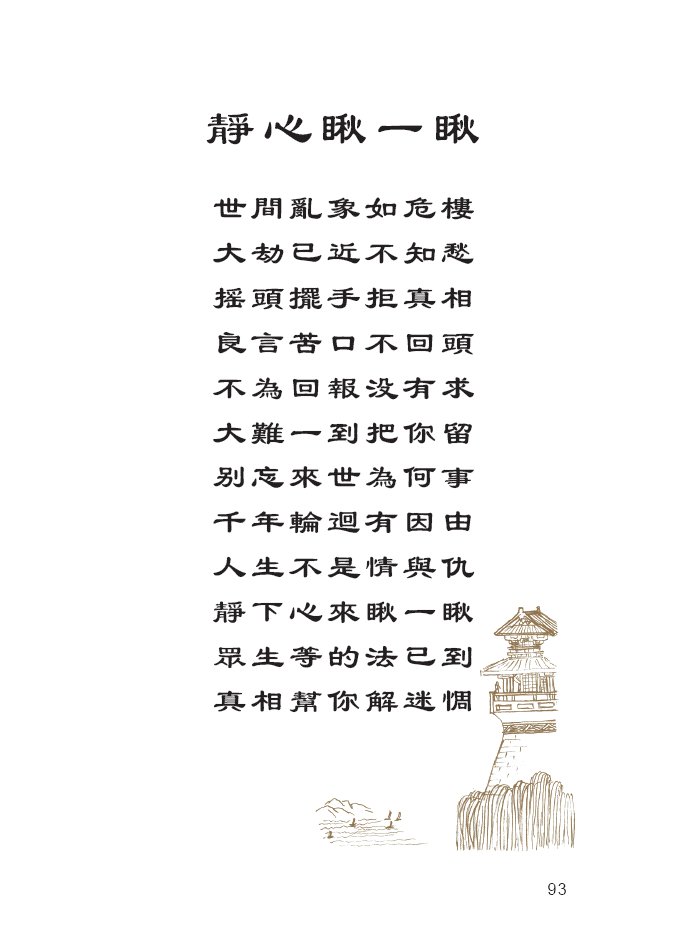 靜心瞅一瞅
世間亂象如危樓
大劫已近不知愁
摇頭擺手拒真相
良言苦口不回頭
不為回報没有求
大難一到把你留
别忘來世為何事
千年輪迴有因由
人生不是情與仇
靜下心來瞅一瞅
眾生等的法已到
真相幫你解迷惆
93